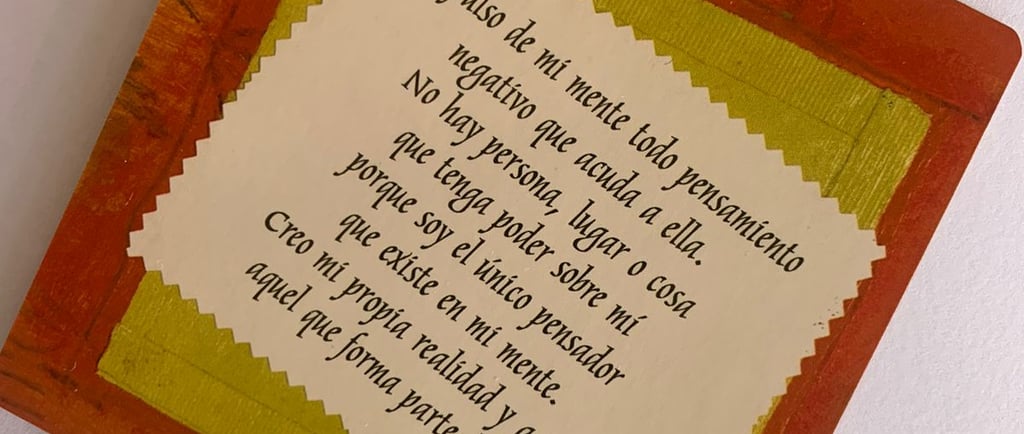 de mi mente todo pensamiento
negativo que acuda a ella.
No hay persona, lugar o cosa
que tenga poder sobre mí
porque soy el único pensador
que existe en mi mente.
Creo mi propia realidad y
aquel que forma parte